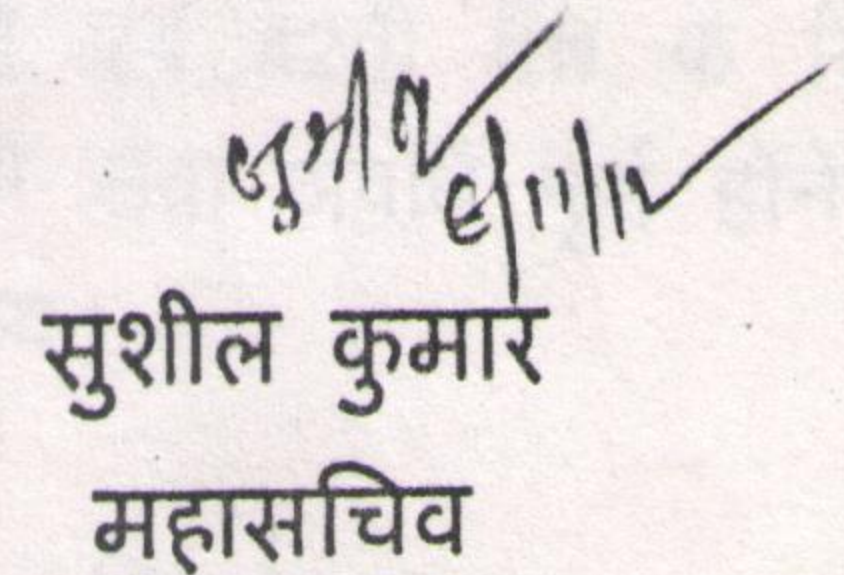 सुशील
सुशील कुमार
महासचिव